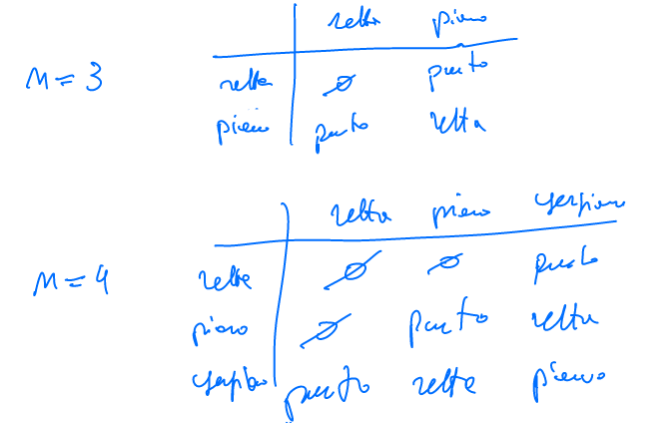 retta piano
n = 3 retta ∅ punto
piano punto retta
retta piano iperpiano
n = 4 retta ∅ ∅ punto
piano ∅ punto retta
iperpiano punto retta piano